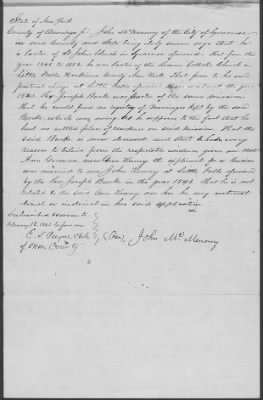 State of New York
County of Onondaga ss. John McMenomy of the City of Syracuse
in said County and State being duly sworn says that he
is Pastor of St Johns Church in Syracuse aforesaid. that from the
year 1845 to 1852 he was Pastor of the Roman Catholic Church in
Little Falls Herkimer County New York. That prior to his said
pastoral charge at Little Falls aforesaid that in the year
1841. Rev Joseph Burke was pastor of the same
that he could find no registry of Marriages kept by the said
Burke, which was owing as he supposes to the fact that he
had no settled place of residence on said Mission. That the
said Burke is now deceased and that he has every
reason to believe from the respectable evidence given in that
Ann Gorman now Ann Kenny the applicant for a pension
was married to one John Kenny at Little Falls aforesaid
by the Rev Joseph Burke in the year 1841. That he is not
related to the said Ann Kenny nor has he any interest
direct or indirect in her said application
Subscribed & sworn to
1865 before me
Clerk (Rev.) John McMenomy
of Onon County